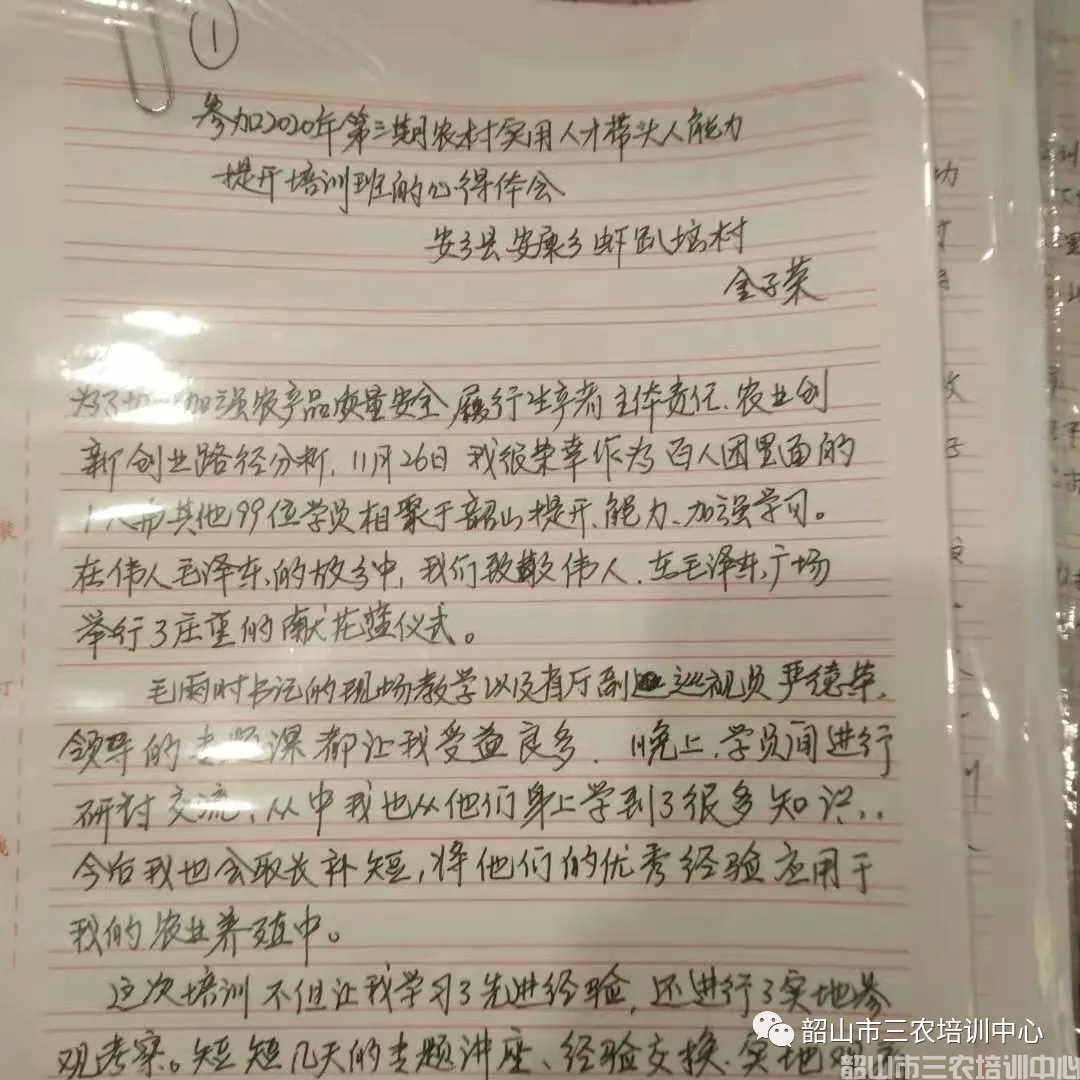 ①
参加2020年第三期农村实用人才带头人能力
提升培训班的心得体会
安乡县安康乡虾趴垴村
金子荣
加强农产品质量安全履行生产者主体责任、农业创
新创业路径分析,11月26日我很荣幸作为百人团里面的
其他99位学员相聚于韶山提升、能力、加强学习。
在伟人毛泽东的故乡中,我们致敬伟人,在毛泽东广场
举行了庄重的献花篮仪式。
毛雨时书记的现场教学以及省厅副巡视员严德荣,
领导的专题课都让我受益良多,晚上,学员间进行
研讨交流,从中我也从他们身上学到了很多知识..
今后我也会取长补短,将他们的优秀经验应用于
我的农业养殖中。
这次培训不但让我学习了先进经验,还进行了实地参
观考察。短短几天的专题讲座、经验交换、实地
韶山市三农培训中心
韶山市三农培训中心